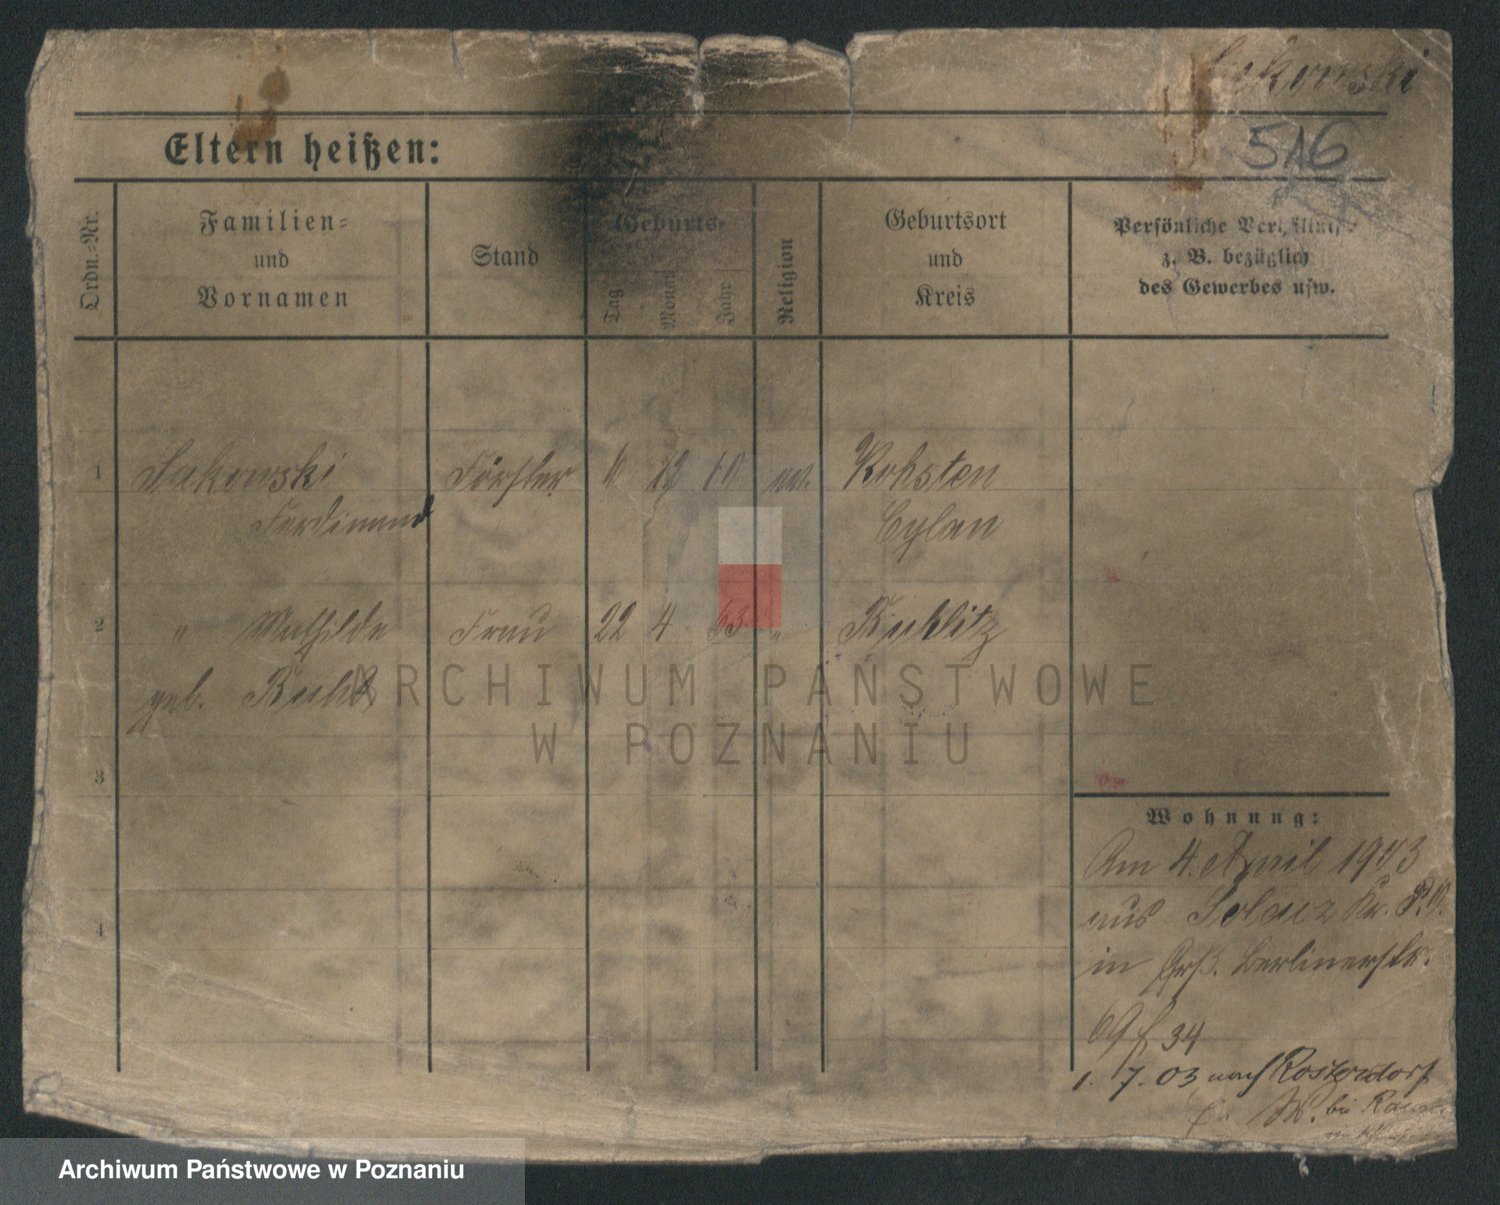 516
Eltern heißen:
Ordn.-Nr.
Familien-
und
Vornamen
Stand
Geburts-
Tag
Monat
Jahr
Religion
Geburtsort
und
Kreis
Persönliche Verhältnisse
z. B. bezüglich
des Gewerbes usw.
1 Sakowski Förster 12 ev.
Ferdinand Eylau
2 " Mathilde Frau 22 4 63 " Kublitz
geb.
3
4
Wohnung:
Am 4. April 1903
aus Solacz Kr. P. O.
in Grß. Berlinerstr.
69 34
1. 7. 03 nach
W. bei
ARCHIWUM PAŃSTWOWE
W POZNANIU
Archiwum Państwowe w Poznaniu